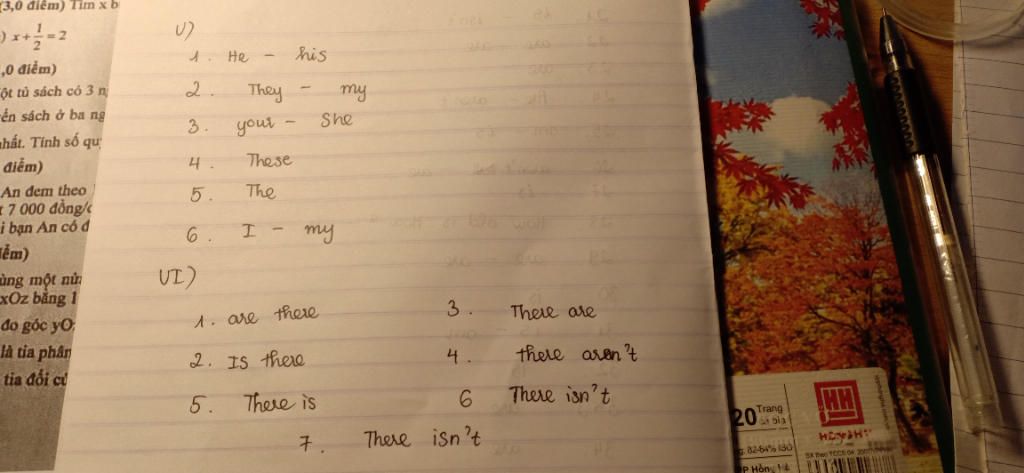 (3,0 điểm) Tìm x b
) x + 1/2 = 2
,0 điểm)
ột tủ sách có 3 n
ển sách ở ba ng
nhất. Tính số qu
điểm)
An đem theo
t 7 000 đồng/c
i bạn An có đ
ểm)
ùng một nử
xOz bằng 1
đo góc yO
là tia phân
tia đối củ
V)
1. He - his
2. They - my
3. your - She
4. These
5. The
6. I - my
VI)
1. are there
3. There are
2. Is there
4. there aren't
5. There is
6 There isn't
7. There isn't
20 Trang
82-84% ISO
HH